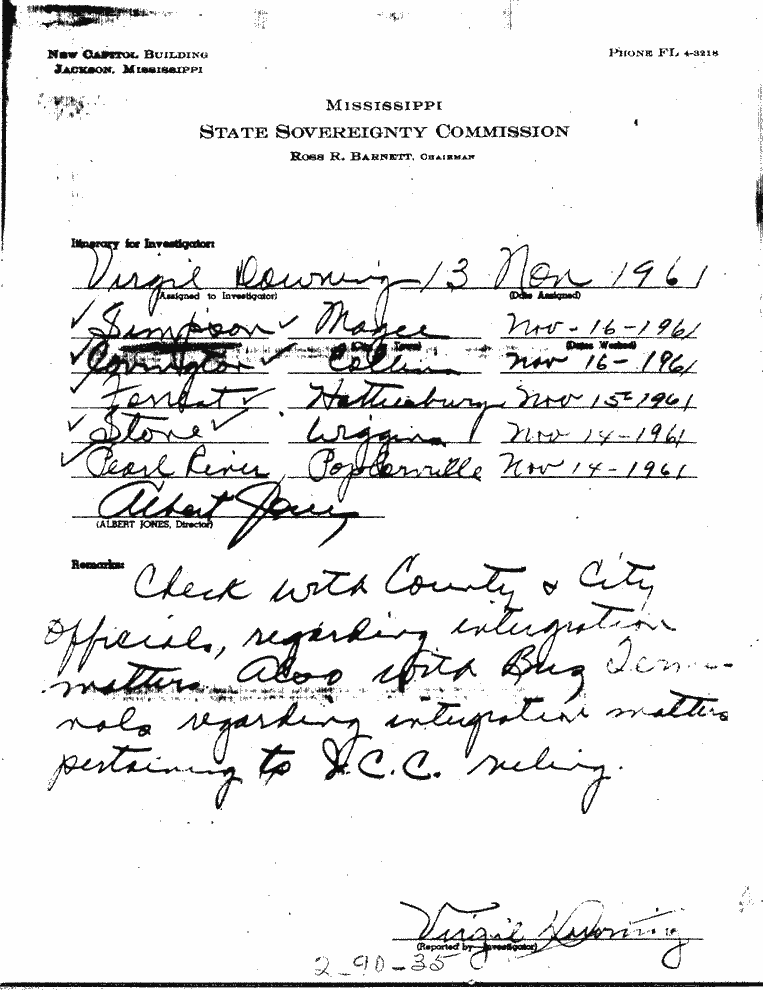 NEW CAPITOL BUILDING PHONE FL 4-3218
JACKSON, MISSISSIPPI
MISSISSIPPI
STATE SOVEREIGNTY COMMISSION
ROSS R. BARNETT, CHAIRMAN
Itinerary for Investigator:
Virgil Downing 13 Nov 1961
(Assigned to Investigator) (Date Assigned)
✓ Simpson ✓ Magee Nov-16-1961
(City or Town) (Dates Worked)
✓ Covington ✓ Collins Nov 16-1961
✓ Forrest ✓ Hattiesburg Nov 15-1961
✓ Stone ✓ Wiggins Nov 14-1961
✓ Pearl River Poplarville Nov 14-1961
Albert Jones
(ALBERT JONES, Director)
Remarks:
Check with County & City
Officials, regarding intergration
matters. Also with Bus Termi-
nals regarding intergration matters
pertaining to I.C.C. ruling.
Virgil Downing
(Reported by Investigator)
2-90-35